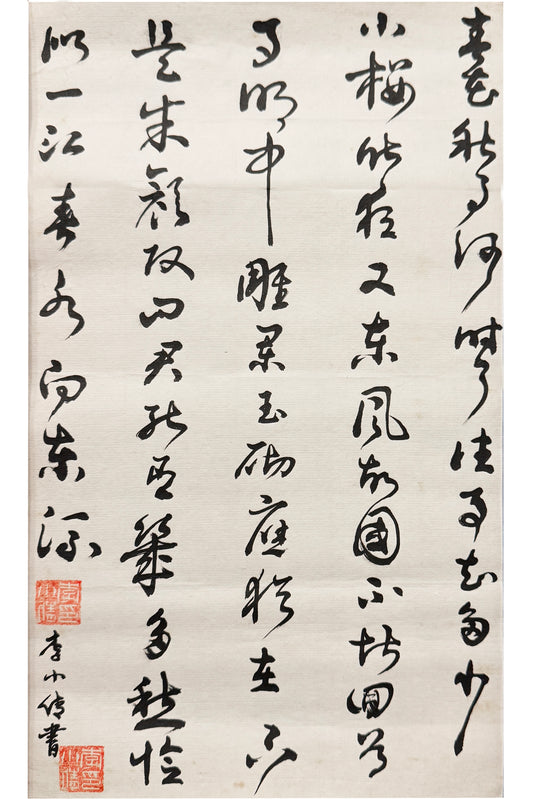 春花秋月何時了往事知多少
小樓昨夜又東風故國不堪回首
月明中雕闌玉砌應猶在只
是朱顏改問君能有幾多愁恰
似一江春水向東流
李小書